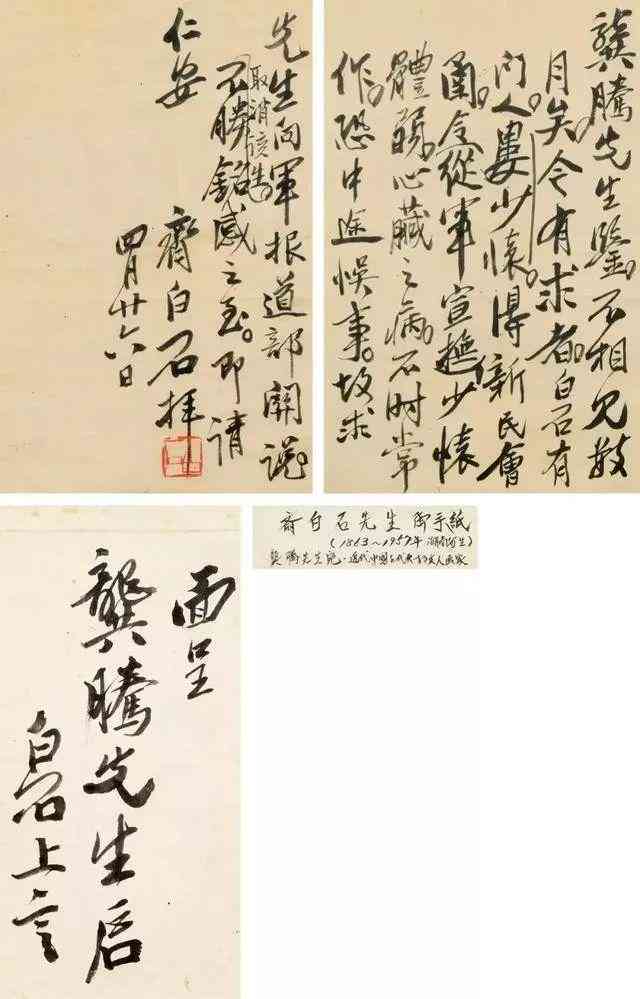 龔騰先生鑒。不相見數
月矣。今有求者。白石有
門人婁少懷。得新民會
函。令從軍宣撫。少懷
體弱。心臟之病。不时常
作。恐中途悞事。故求
先生向軍报道部開說
取消该
不勝銘感之至。即請
仁安
齊白石拜
四月廿六日
面呈
龔騰先生启
白石上言
齊白石先生 御手紙
(1863~1957年 湖南省生)
龔騰先生宛・近代中国を代表する文人画家